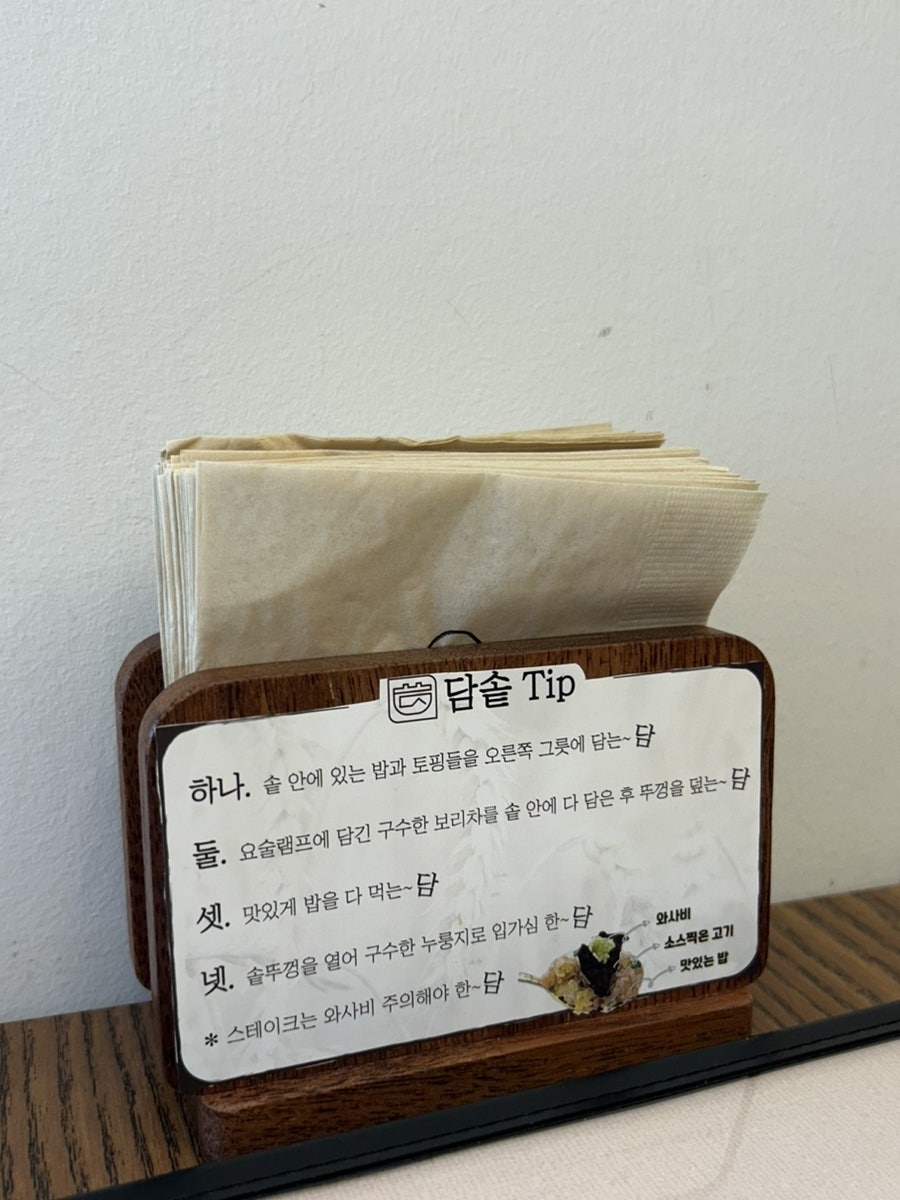 담솥 Tip
하나. 솥 안에 있는 밥과 토핑들을 오른쪽 그릇에 담는~담
둘. 요술램프에 담긴 구수한 보리차를 솥 안에 다 담은 후 뚜껑을 덮는~담
셋. 맛있게 밥을 다 먹는~담
넷. 솥뚜껑을 열어 구수한 누룽지로 입가심 한~담
* 스테이크는 와사비 주의해야 한~담
와사비
소스찍은 고기
맛있는 밥